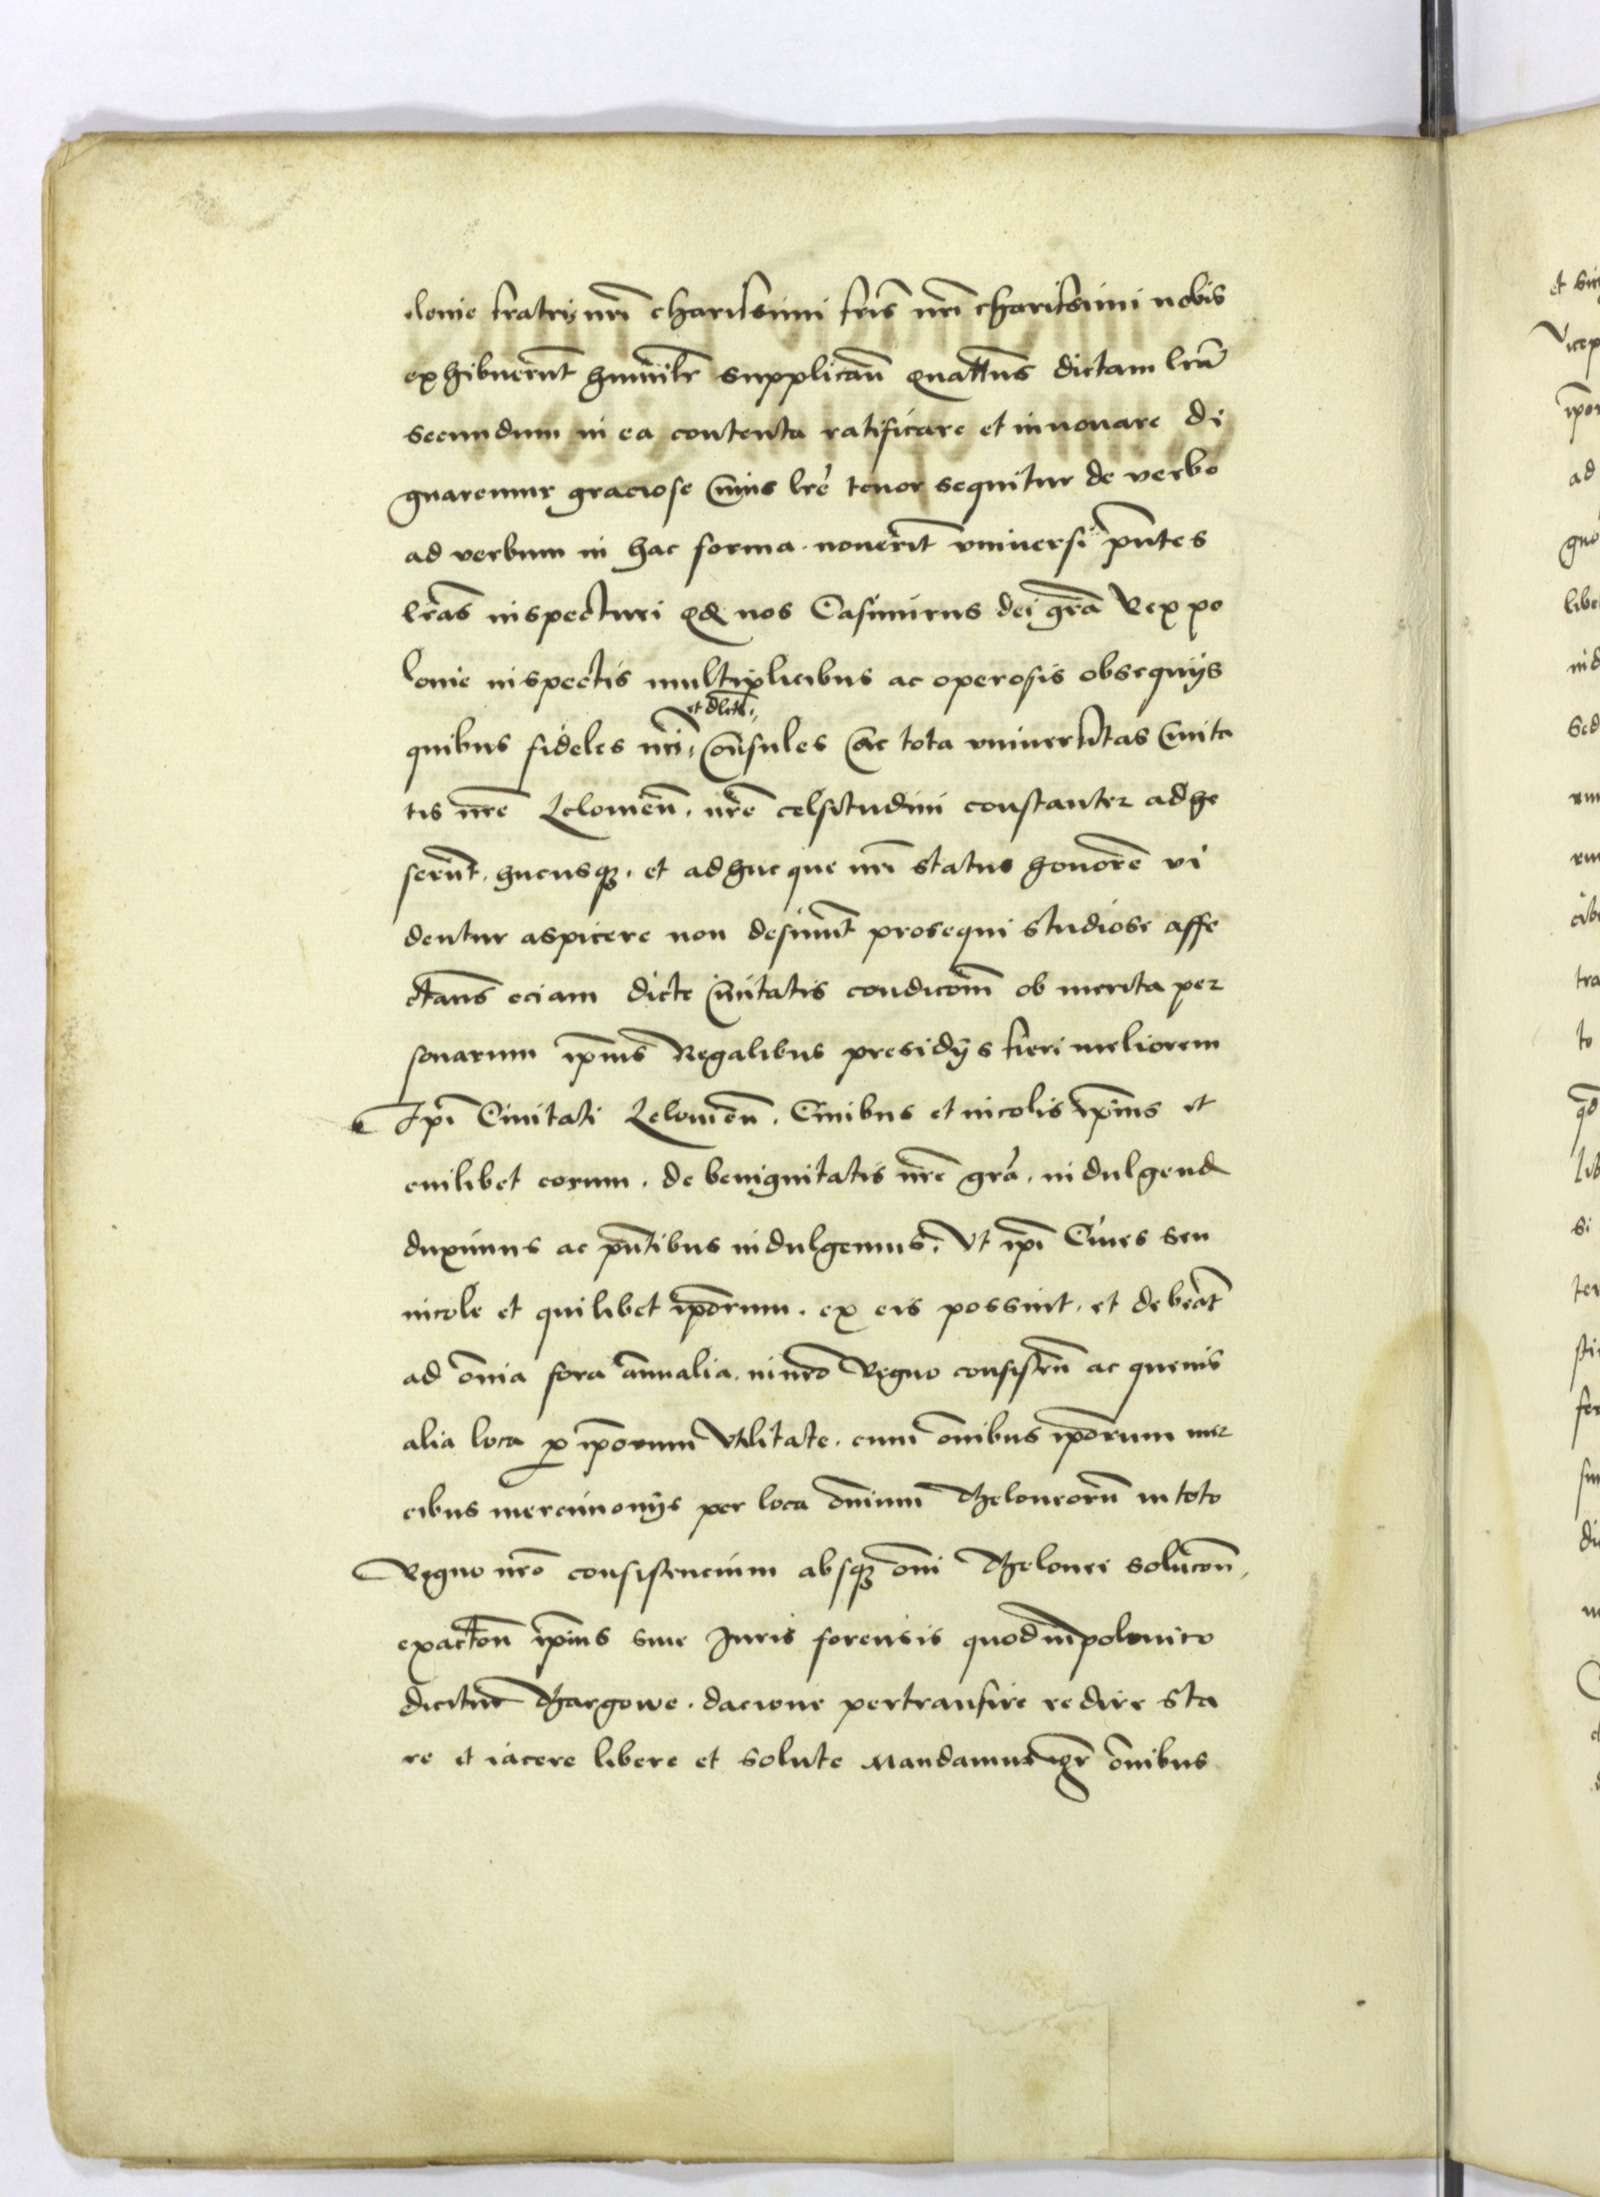 lonie fratris nri charissimi fris nri charissimi nobis
exhibuerunt humilr supplican quattus dictam lram
secundum in ea contenta ratificare et innouare di
gnaremur graciose cuius lre tenor sequitur de verbo
ad verbum in hac forma. nouerit vniuersi pntes
lras inspecturi qd nos Casimirus dei gra Rex po
lonie inspectis multiplicibus ac operosis obsequijs
et dilcti
quibus fideles nri, Consules ac tota vniuersitas Ciuita
tis nre Lelouien. nre celsitudini constanter adhe
serunt. hucusq. et adhuc que nri status honore vi
dentur aspicere non desinunt prosequi studiose affe
ctans eciam dicte Ciuitatis condicom ob merita per
sonarum ipius Regalibus presidijs fieri meliorem
Ipi Ciuitati Lelouien. Ciuibus et incolis ipius et
cuilibet eorum. de benignitatis nre gra. indulgend
duximus ac pntibus indulgemus, Vt ipi Ciues seu
incole et quilibet iporum. ex eis possint. et debeat
ad omia fora annalia. in nro Regno consistn ac queuis
alia loca p iporum Vtilitate. cum omibus iporum mer
cibus mercimonijs per loca omium Theloneorum in toto
Regno nro consistencium absq omi Thelonei solucon,
exacton ipius siue Juris forensis quod in polonico
dicitur Thargowe. dacione pertransire redire sta
re et iacere libere et solute Mandamus igr omibus